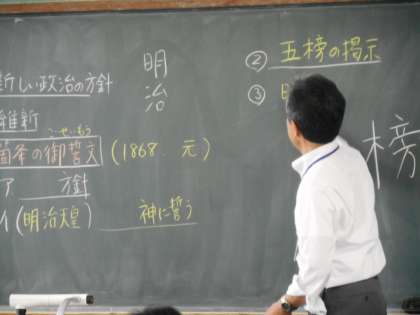 新しい政治の方針
維新
ごせいもん
箇条の御誓文 (1868. 元)
ア 方針
イ (明治天皇) 神に誓う
明治
② 五榜の掲示
③
榜